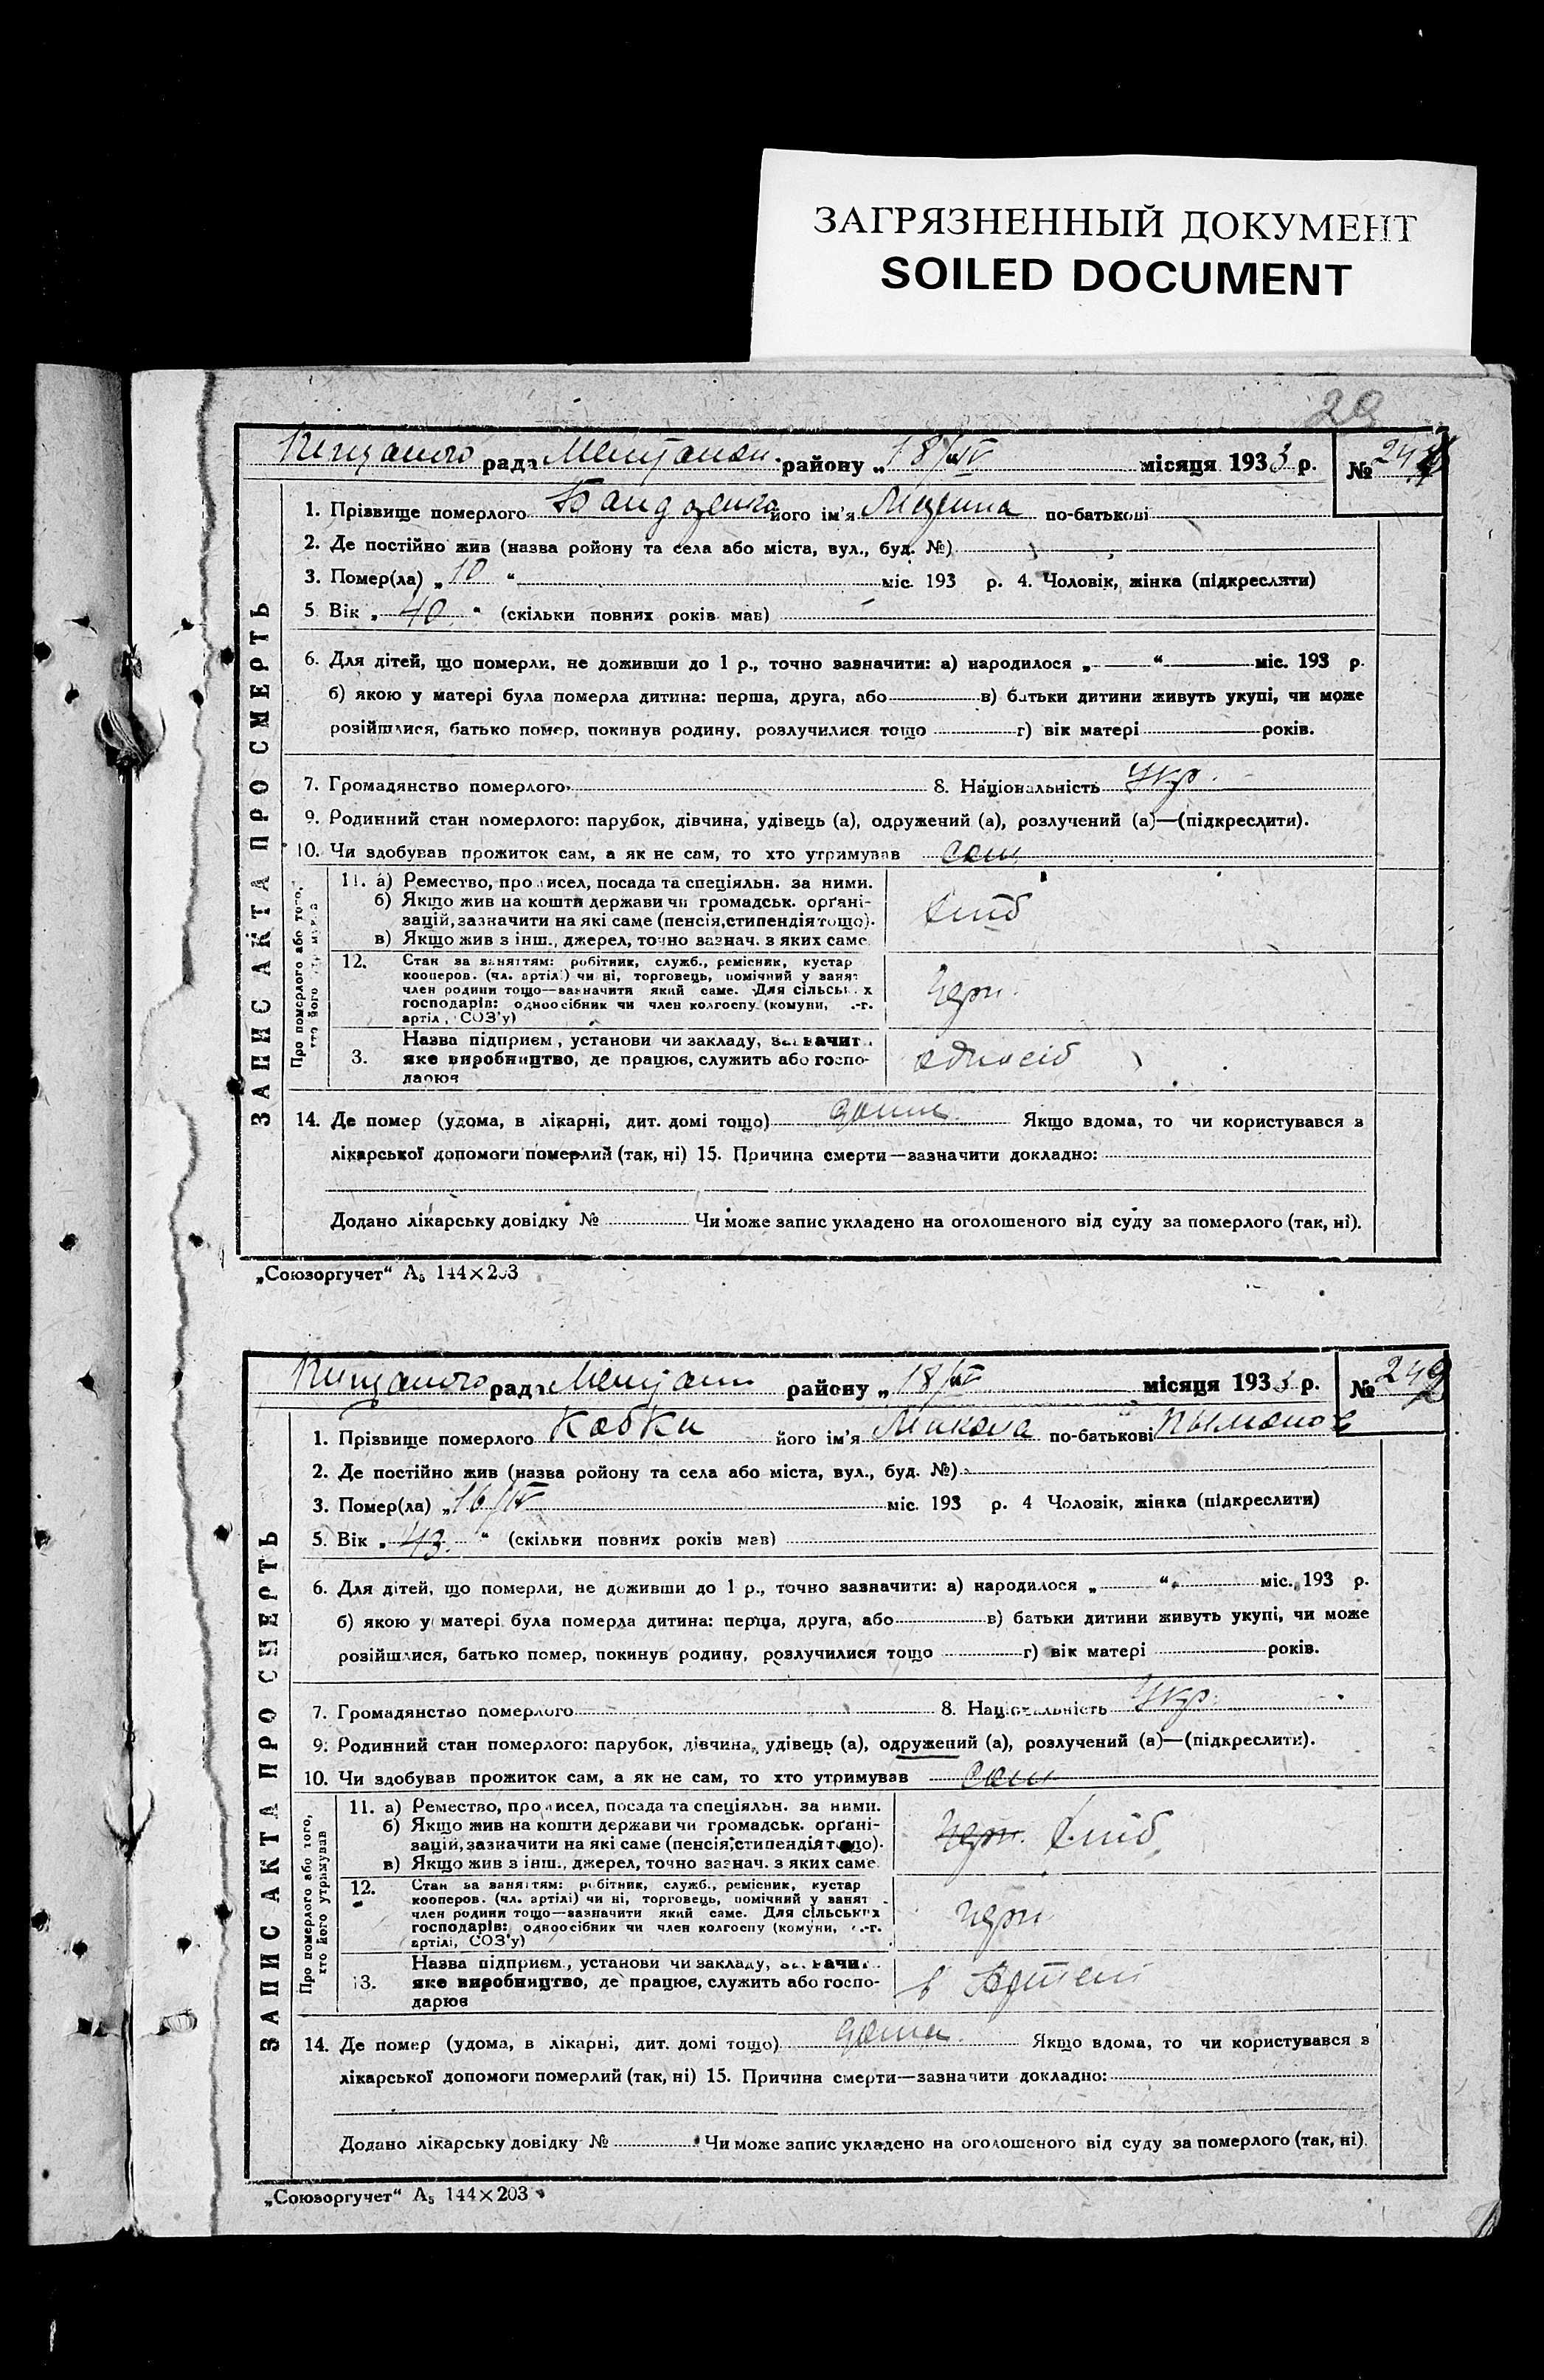 ЗАГРЯЗНЕННЫЙ ДОКУМЕНТ
SOILED DOCUMENT
29
рада район у „18/IV місяця 1933 р. №
ЗАПИС АКТА ПРО СМЕРТЬ
1. Прізвище померлого його ім'я по-батькові
2. Де постійно жив (назва ройону та села або міста, вул., буд. №)
3. Помер(ла) „10 “ міс. 193 р. 4. Чоловік, жінка (підкреслити)
5. Вік „40 “ (скільки повних років мав)
6. Для дітей, що померли, не доживши до 1 р., точно зазначити: а) народилося „ “ міс. 193 р.
б) якою у матері була померла дитина: перша, друга, або в) батьки дитини живуть укупі, чи може
розійшлися, батько помер, покинув родину, розлучилися тощо г) вік матері років.
7. Громадянство померлого 8. Національність Укр.
9. Родинний стан померлого: парубок, дівчина, удівець (а), одружений (а), розлучений (а)—(підкреслити).
10. Чи здобував прожиток сам, а як не сам, то хто утримував сам
Про померлого або того, хто його утримував
11. а) Ремество, промисел, посада та спеціяльн. за ними.
б) Якщо жив на кошти держави чи громадськ. орґані-
зацій, зазначити на які саме (пенсія, стипендія тощо).
в) Якщо жив з інш., джерел, точно зазнач. з яких саме.
хліб
12. Стан за заняттям: робітник, служб., ремісник, кустар
кооперов. (чл. артілі) чи ні, торговець, помічний у занят
член родини тощо—зазначити який саме. Для сільських
господарів: одноосібник чи член колгоспу (комуни, с.-г.
артілі, СОЗ'у)
13. Назва підприєм., установи чи закладу, зазначит.
яке виробництво, де працює, служить або госпо-
дарює
одноосіб
14. Де помер (удома, в лікарні, дит. домі тощо) дома Якщо вдома, то чи користувався з
лікарської допомоги померлий (так, ні) 15. Причина смерти—зазначити докладно:
Додано лікарську довідку № Чи може запис укладено на оголошеного від суду за померлого (так, ні).
„Союзоргучет“ А₅ 144×203
рада району „18/IV місяця 1933 р. №
ЗАПИС АКТА ПРО СМЕРТЬ
1. Прізвище померлого Кобки його ім'я Микола по-батькові
2. Де постійно жив (назва ройону та села або міста, вул., буд. №)
3. Помер(ла) „16/IV міс. 193 р. 4 Чоловік, жінка (підкреслити)
5. Вік „43. “ (скільки повних років мав)
6. Для дітей, що померли, не доживши до 1 р., точно зазначити: а) народилося „ “ міс. 193 р.
б) якою у матері була померла дитина: перша, друга, або в) батьки дитини живуть укупі, чи може
розійшлися, батько помер, покинув родину, розлучилися тощо г) вік матері років.
7. Громадянство померлого 8. Національність Укр.
9. Родинний стан померлого: парубок, дівчина, удівець (а), одружений (а), розлучений (а)—(підкреслити).
10. Чи здобував прожиток сам, а як не сам, то хто утримував сам
Про померлого або того, хто його утримував
11. а) Ремество, промисел, посада та спеціяльн. за ними.
б) Якщо жив на кошти держави чи громадськ. орґані-
зацій, зазначити на які саме (пенсія, стипендія тощо).
в) Якщо жив з інш., джерел, точно зазнач. з яких саме.
хліб
12. Стан за заняттям: робітник, служб., ремісник, кустар
кооперов. (чл. артілі) чи ні, торговець, помічний у занят
член родини тощо—зазначити який саме. Для сільських
господарів: одноосібник чи член колгоспу (комуни, с.-г.
артілі, СОЗ'у)
13. Назва підприєм., установи чи закладу, зазначит.
яке виробництво, де працює, служить або госпо-
дарює
в Артелі
14. Де помер (удома, в лікарні, дит. домі тощо) дома. Якщо вдома, то чи користувався з
лікарської допомоги померлий (так, ні) 15. Причина смерти—зазначити докладно:
Додано лікарську довідку № Чи може запис укладено на оголошеного від суду за померлого (так, ні).
„Союзоргучет“ А₅ 144×203